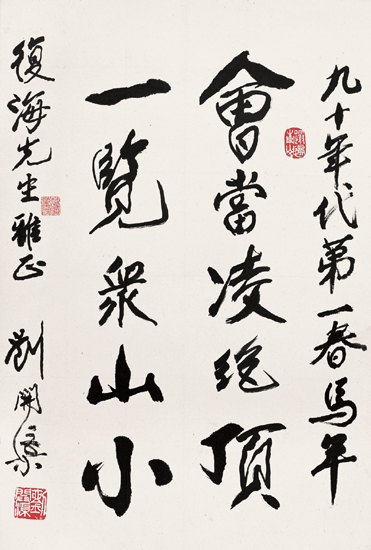 九十年代第一春馬年
會當凌絕頂
一覽衆山小
復海先生雅正
劉開渠